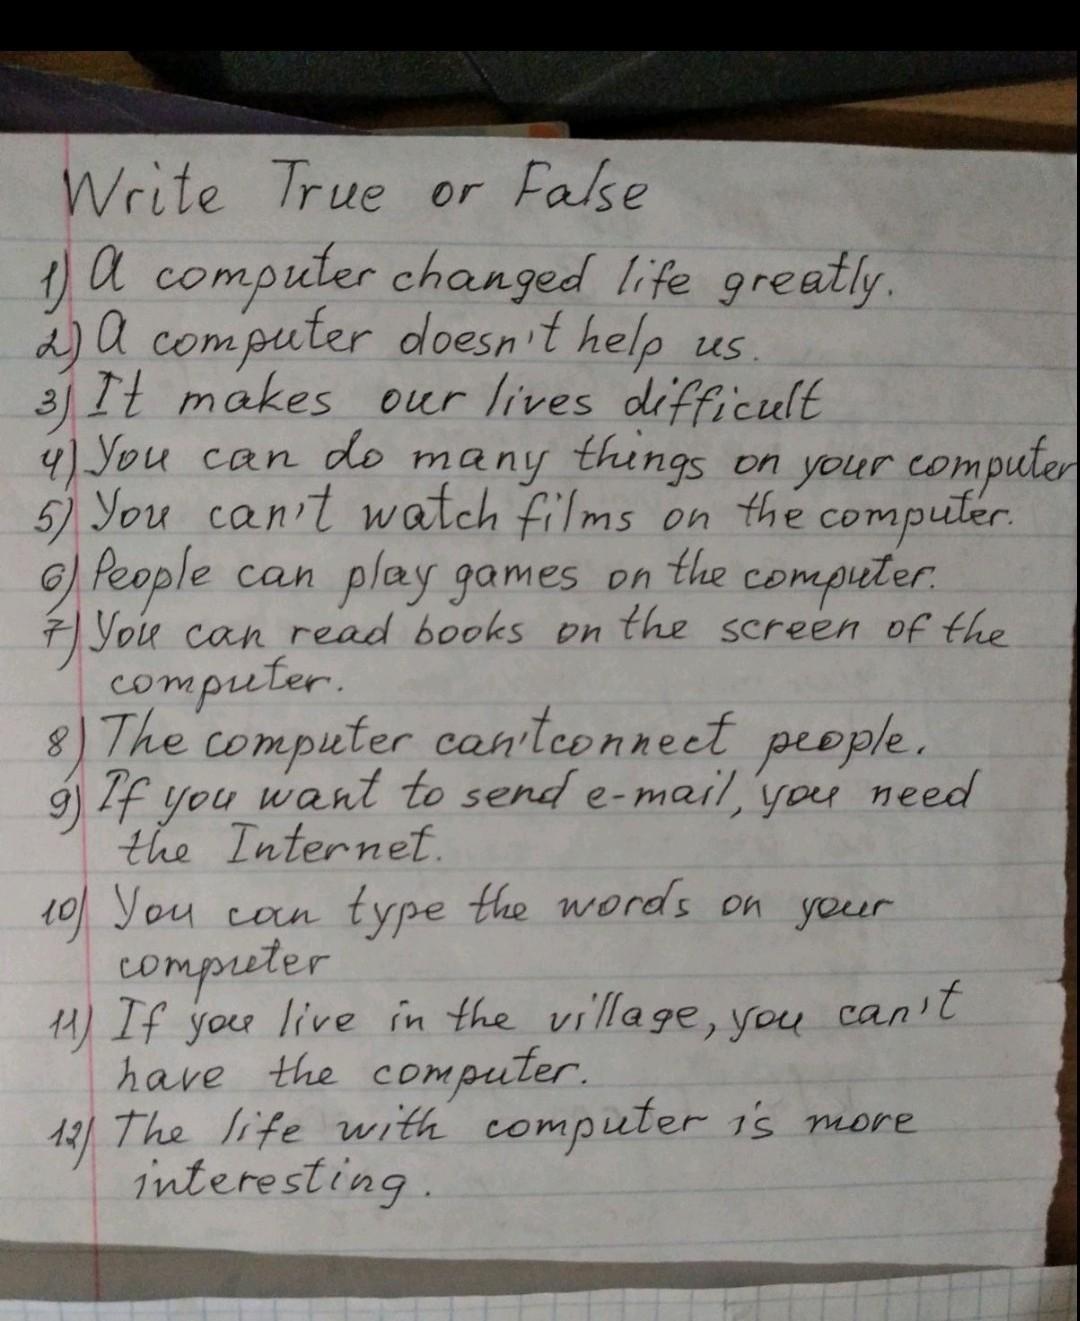 Write True or False
1) A computer changed life greatly.
2) A computer doesn't help us.
3) It makes our lives difficult
4) You can do many things on your computer
5) You can't watch films on the computer.
6) People can play games on the computer.
7) You can read books on the screen of the
computer.
8) The computer can't connect people.
9) If you want to send e-mail, you need
the Internet.
10) You can type the words on your
computer
11) If you live in the village, you can't
have the computer.
12) The life with computer is more
interesting.